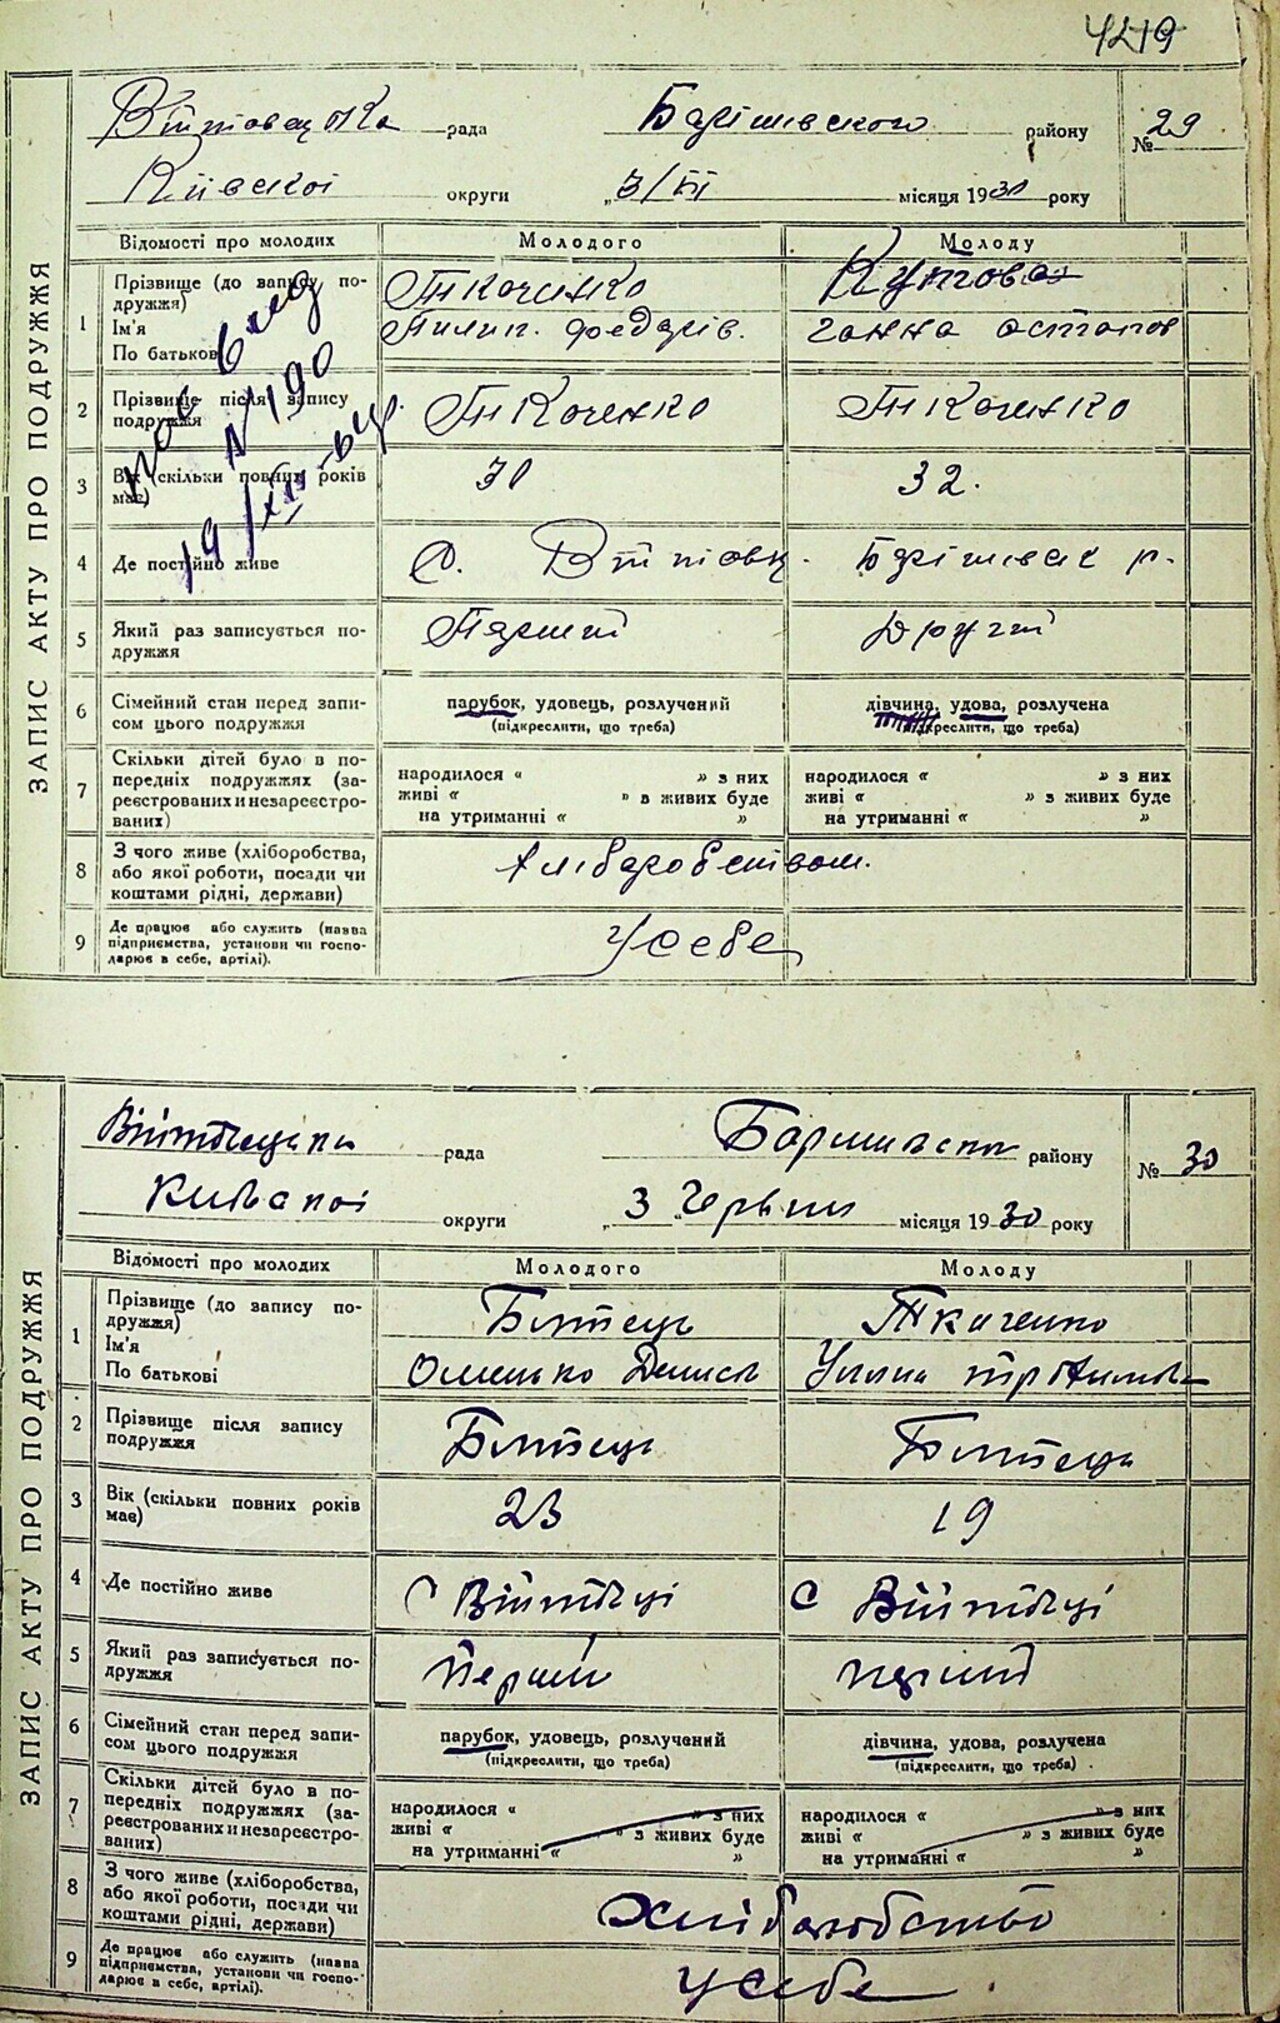 429
ЗАПИС АКТУ ПРО ПОДРУЖЖЯ
рада Баришевского району № 29
Київскоі округи „3/VI місяця 1930 року
Відомості про молодих Молодого Молоду
1 Прізвище (до запису подружжя) Ткаченко
Ім'я По батькові Пилип. Федорів. Ганна Остапов
2 Прізвище після запису подружжя Ткаченко Ткаченко
3 Вік (скільки повних років має) 30 32.
4 Де постійно живе С. Війтовц. Баришевск р.
5 Який раз записується подружжя Перший Другий
6 Сімейний стан перед записом цього подружжя парубок, удовець, розлучений (підкреслити, що треба) дівчина, удова, розлучена (підкреслити, що треба)
7 Скільки дітей було в попередніх подружжях (зареєстрованих и незареєстрованих) народилося “ ” з них живі “ ” з живих буде на утриманні “ ” народилося “ ” з них живі “ ” з живих буде на утриманні “ ”
8 З чого живе (хліборобства, або якої роботи, посади чи коштами рідні, держави) Хліборобством.
9 Де працює або служить (назва підприємства, установи чи господарює в себе, артілі). У себе
№ 190
19/XII
ЗАПИС АКТУ ПРО ПОДРУЖЖЯ
рада району № 30
округи „3„ Червня місяця 1930 року
Відомості про молодих Молодого Молоду
1 Прізвище (до запису подружжя) Ткаченко
Ім'я По батькові Уляна
2 Прізвище після запису подружжя
3 Вік (скільки повних років має) 23 19
4 Де постійно живе С Війтівці С Війтівці
5 Який раз записується подружжя Перший перший
6 Сімейний стан перед записом цього подружжя парубок, удовець, розлучений (підкреслити, що треба) дівчина, удова, розлучена (підкреслити, що треба)
7 Скільки дітей було в попередніх подружжях (зареєстрованих и незареєстрованих) народилося “ ” з них живі “ ” з живих буде на утриманні “ ” народилося “ ” з них живі “ ” з живих буде на утриманні “ ”
8 З чого живе (хліборобства, або якої роботи, посади чи коштами рідні, держави) хліборобство
9 Де працює або служить (назва підприємства, установи чи господарює в себе, артілі). у себе